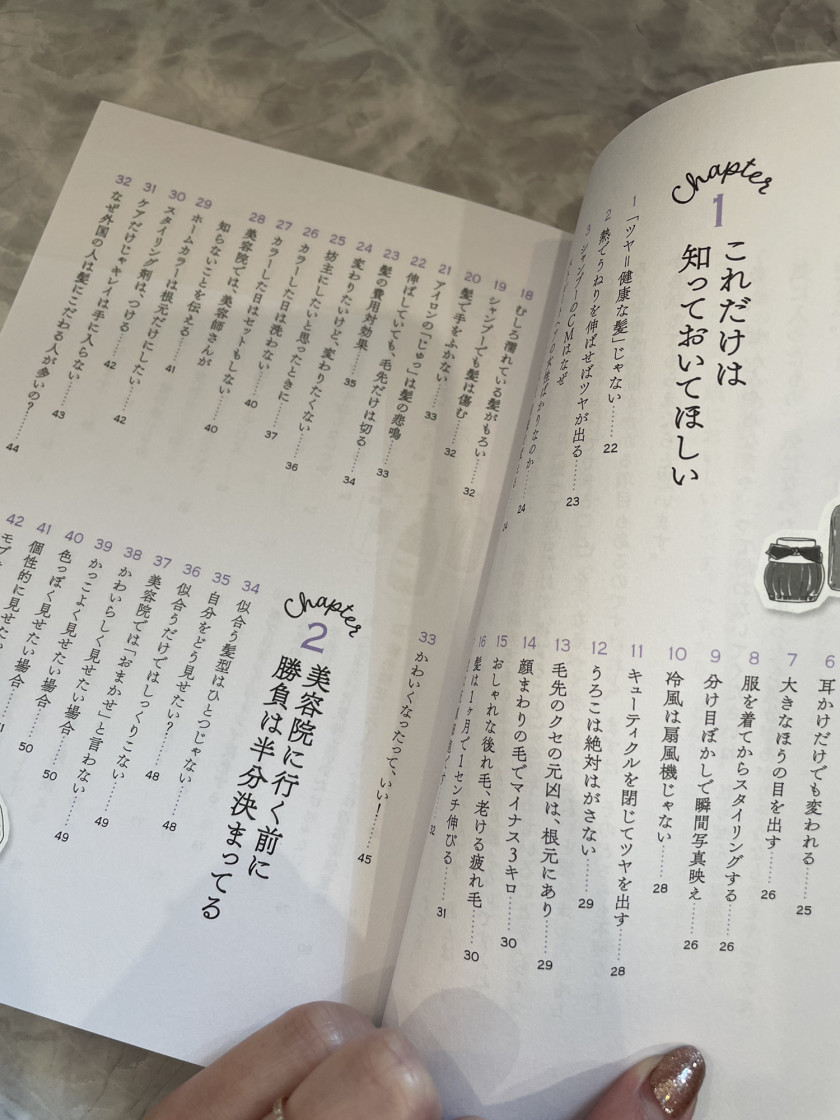 Chapter
1
これだけは
知っておいてほしい
1 「ツヤ=健康な髪」じゃない……22
2 熱でうねりを伸ばせばツヤが出る……23
3 シャンプーのCMはなぜ
ばかりなのか……24
6 耳かけだけでも変われる……25
7 大きなほうの目を出す……26
8 服を着てからスタイリングする……26
9 分け目ぼかしで瞬間写真映え……26
10 冷風は扇風機じゃない……28
11 キューティクルを閉じてツヤを出す……28
12 うろこは絶対はがさない……29
13 毛先のクセの元凶は、根元にあり……29
14 顔まわりの毛でマイナス3キロ……30
15 おしゃれな後れ毛、老ける疲れ毛……30
16 髪は1ヶ月で1センチ伸びる……31
18 むしろ濡れている髪がもろい……32
19 シャンプーでも髪は傷む……32
20 髪で手をふかない……33
21 アイロンの「じゅっ」は髪の悲鳴……33
22 伸ばしていても、毛先だけは切る……34
23 髪の費用対効果……35
24 変わりたいけど、変わりたくない……36
25 坊主にしたいと思ったときに……37
26 カラーした日は洗わない……40
27 カラーした日はセットもしない……40
28 美容院では、美容師さんが
知らないことを伝える……41
29 ホームカラーは根元だけにしたい……42
30 スタイリング剤は、つける……42
31 ケアだけじゃキレイは手に入らない……43
32 なぜ外国の人は髪にこだわる人が多いの?……44
33 かわいくなったって、いい!……45
Chapter
2
美容院に行く前に
勝負は半分決まってる
34 似合う髪型はひとつじゃない……48
35 自分をどう見せたい?……48
36 似合うだけではしっくりこない……49
37 美容院では「おまかせ」と言わない……49
38 かわいらしく見せたい場合……50
39 かっこよく見せたい場合……50
40 色っぽく見せたい場合
41 個性的に見せたい
42 モブ